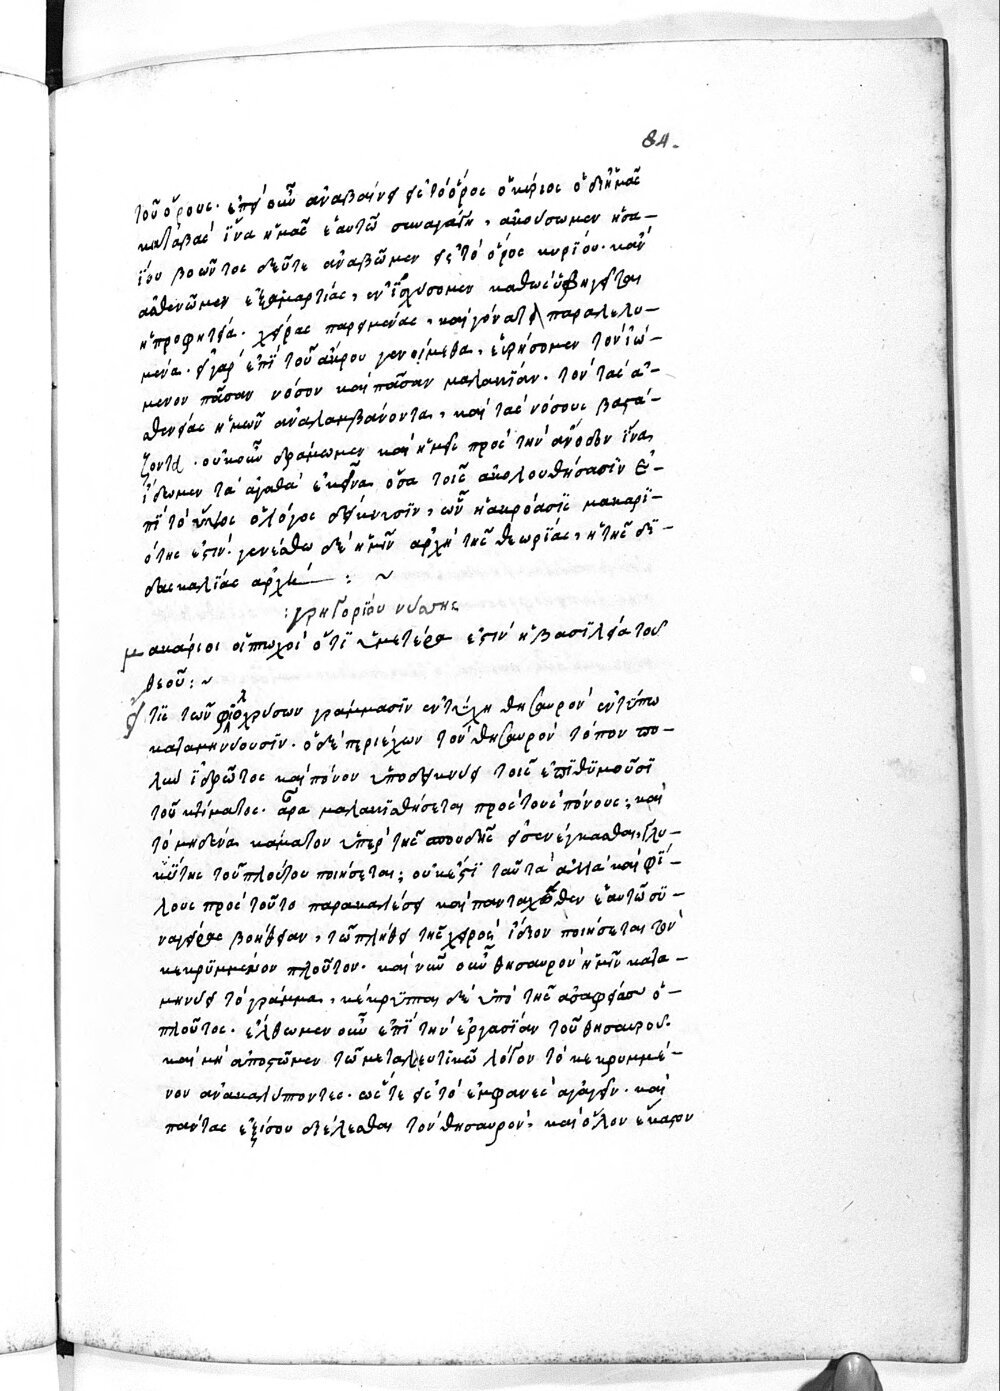 84.
τοῦ ὄρους. ἐπεὶ οὖν ἀναβαίνει εἰς τὸ ὄρος ὁ κύριος ὁ δι' ἡμᾶς
καταβὰς ἵνα ἡμᾶς ἑαυτῶ συναγάγη, ἀκούσωμεν ἡσα-
ΐου βοῶντος δεῦτε ἀναβῶμεν εἰς τὸ ὄρος κυρίου. κἂν
ἀσθενῶμεν ἐξ ἁμαρτίας, ἐνισχύσομεν καθὼς ὑφηγεῖται
ἡ προφητεία. χεῖρας παρειμένας, καὶ γόνατα παραλελυ-
μένα. εἰ γὰρ ἐπὶ τοῦ ἄκρου γενοίμεθα, εὑρήσομεν τὸν ἰώ-
μενον πᾶσαν νόσον καὶ πᾶσαν μαλακΐαν. τὸν τὰς ἀ-
σθενείας ἡμῶν ἀναλαμβάνοντα, καὶ τὰς νόσους βαστά-
ζοντα. οὐκοῦν δράμωμεν καὶ ἡμεῖς πρὸς τὴν ἄνοδον ἵνα
ἴδωμεν τὰ ἀγαθὰ ἐκεῖνα ὅσα τοῖς ἀκολουθήσασϊν ἐ-
πΐ τὸ ὕψος ὁ λόγος δείκνυσϊν, ὧν ἡ ἀκρόασϊς μακαρϊ-
ότης ἐστίν. γενέσθω δὲ ἡμῖν ἀρχὴ τῆς θεωρΐας, ἡ τῆς δϊ-
δασκαλΐας ἀρχή : ~
: γρηγορΐου νύσσης
μακάριοι οἱ πτωχοὶ ὅτϊ ὑμετέρα ἐστὶν ἡ βασϊλεία τοῦ
θεοῦ : ~
εἴ τϊς τῶν φϊλοχρύσων γράμμασϊν ἐντύχη θησαυρὸν ἐν τύπω
καταμηνύουσϊν. ὁ δὲ περιέχων τὸν θησαυρὸν τόπον πο-
λὺν ἱδρῶτος καὶ πόνον ὑποδείκνυει τοῖς ἐπϊθϋμοῦσϊ
τοῦ κτήματος. ἆρα μαλακϊσθήσεται πρὸς τοὺς πόνους; καὶ
τὸ μηδένα κάματον ὑπὲρ τῆς σπουδῆς εἰσενέγκασθαι, γλυ-
κΰτης τοῦ πλούτου ποιήσεται; οὐκ ἔστϊ ταῦτα ἀλλὰ καὶ φΐ-
λους πρὸς τοῦτο παρακαλέσει καὶ πανταχόθεν ἑαυτῶ σϋ-
ναγείρας βοήθειαν, τῶ πλήθει τῆς χειρὸς ἴδϊον ποιήσεται τὸν
κεκρϋμμένον πλοῦτον. καὶ νῦν οὖν θησαυρὸν ἡμῖν κατα-
μηνύει τὸ γράμμα, κέκρϋπται δὲ ὑπὸ τῆς ἀσαφείας ὁ
πλοῦτος. ἔλθωμεν οὖν ἐπΐ τὴν ἐργασΐαν τοῦ θησαυροῦ.
καὶ μὴ ἀποστῶμεν τῶ μεταλευτϊκῶ λόγον τὸ κεκρυμμέ-
νον ἀνακαλύπτοντες. ὥστε εἰς τὸ ἐμφανὲς ἀγαγεῖν. καὶ
πάντας ἐξίσου διελέσθαι τὸν θησαυρὸν, καὶ ὅλον ἕκαστον